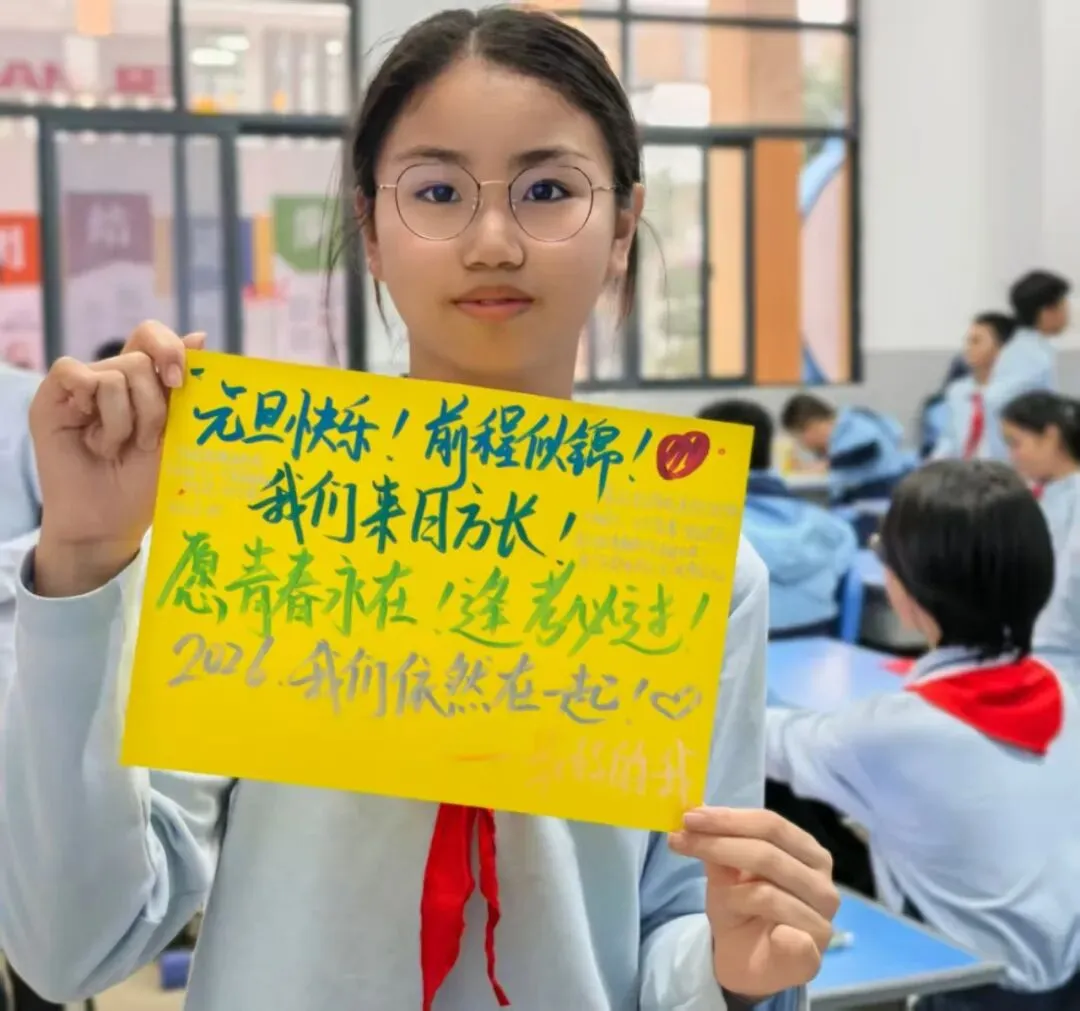 元旦快乐！前程似锦！
我们来日方长！
愿青春永在！逢考必过！
2026.我们依然在一起！